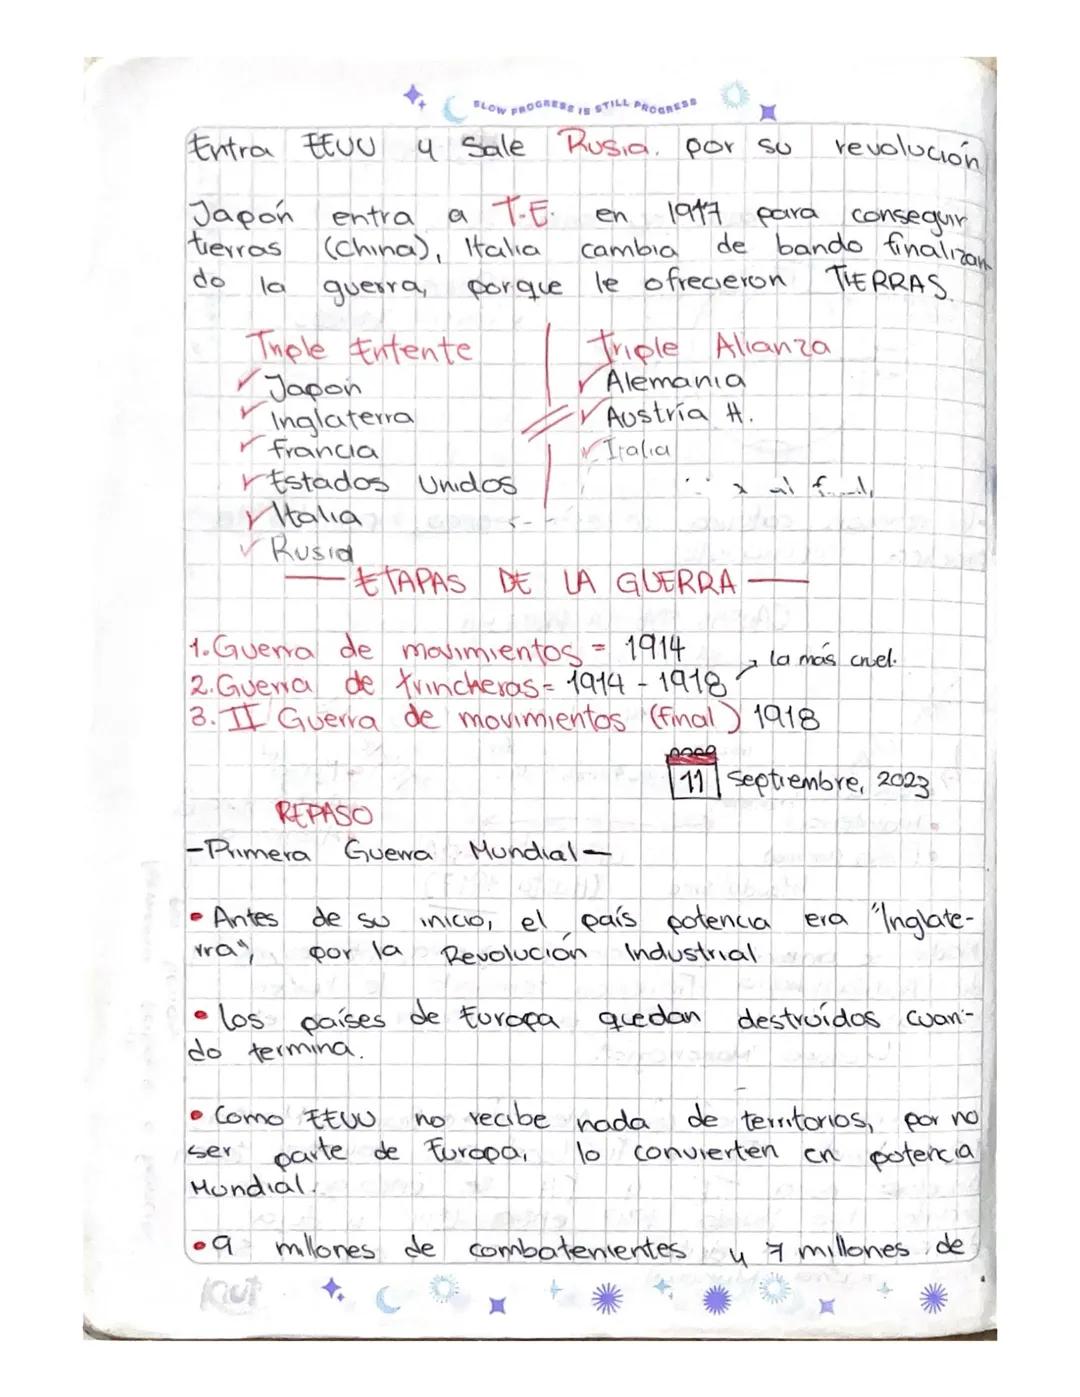 SLOW PROGRESS IS STILL PROGRESS
Entra EEUU y Sale Rusia. por su revolución
Japón entra a T.E. en 1917 para conseguir
tierras (China), Italia cambia de bando finalizan
do la guerra, porque le ofrecieron TIERRAS.
Triple Entente Triple Alianza
Japón Alemania
Inglaterra Austría H.
Francia Italia
Estados Unidos x al
Italia
Rusia
ETAPAS DE LA GUERRA
1. Guerra de movimientos = 1914
la más cruel.
2. Guerra de trincheras = 1914 - 1918
3. II Guerra de movimientos (final) 1918
11 Septiembre, 2023
REPASO
- Primera Guerra Mundial -
• Antes de su inicio, el país potencia era "Inglate-
rra", por la Revolución Industrial
• Los países de Europa quedan destruídos cuan-
do termina.
• Como EEUU no recibe nada de territorios, por no
ser parte de Europa, lo convierten en potencia
Mundial.
• 9 millones de combatenientes y 7 millones de